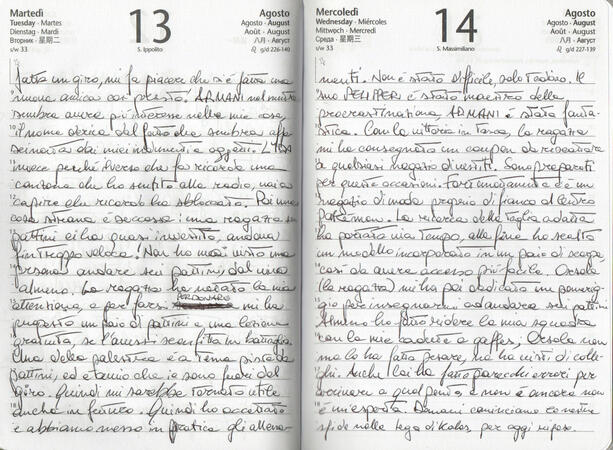 Martedì
Tuesday · Martes
Dienstag · Mardi
Вторник · 星期二
s/w 33
13
S. Ippolito
Agosto
Agosto · August
Août · August
八月 · Август
g/d 226-140
fatto un giro, mi fa piacere che si è fatta una
nuova amica così presto! ARMANI nel mentre
sembra avere più interesse nelle mie cose,
il nome deriva dal fatto che sembra affa-
scinata dai miei indumenti e oggetti. L'
invece perché diverso che fa ricorda una
canzone che ho sentito alla radio, vai a
capire che ricordo ha sbloccato. Poi una
cosa strana è successa: una ragazza su
pattini ci ha quasi investito, andava
fin troppo veloce! Non ho mai visto una
persona andare sui pattini dal vivo
almeno. La ragazza ha notato la mia
attenzione, e per farsi PERDONARE mi ha
proposto un paio di pattini e una lezione
gratuita, se l'avessi sconfitta in battaglia.
Una della palestra è a tema pista da
pattini, ed etanio che io sono fuori dal
giro. Quindi mi sarebbe tornato utile
anche in futuro. Quindi ho accettato
e abbiamo messo in pratica gli allena-
Mercoledì
Wednesday · Miércoles
Mittwoch · Mercredi
Среда · 星期三
s/w 33
14
S. Massimiliano
Agosto
Agosto · August
Août · August
八月 · Август
g/d 227-139
menti. Non è stato difficile, solo tedioso. Il
suo è stato maestro della
procrastinazione, ARMANI è stata fanta-
stica. Con la vittoria in tasca, la ragazza
mi ha consegnato un coupon da riscattare
a qualsiasi negozio di vestiti. Sono preparati
per queste occasioni. Fortunatamente c'è un
negozio di moda proprio di fianco al Centro
Pokémon. La ricerca della taglia adatta
ha portato via tempo, alla fine ho scelto
un modello incorporato in un paio di scarpe
così da avere accesso più facile. Orsola
(la ragazza) mi ha poi dedicato un pomerig-
gio per insegnarmi ad andare sui pattini
Almeno ho fatto ridere la mia squadra
con le mie cadute e gaffes, Orsola non
me lo ha fatto pesare, ne ha visti di colle-
ghi. Anche lei ha fatto parecchi errori per
arrivare a quel punto e non è ancora non
è un'esperta. Domani cominciano le nostre
sfide nelle lega di Kalos, per oggi riposo.